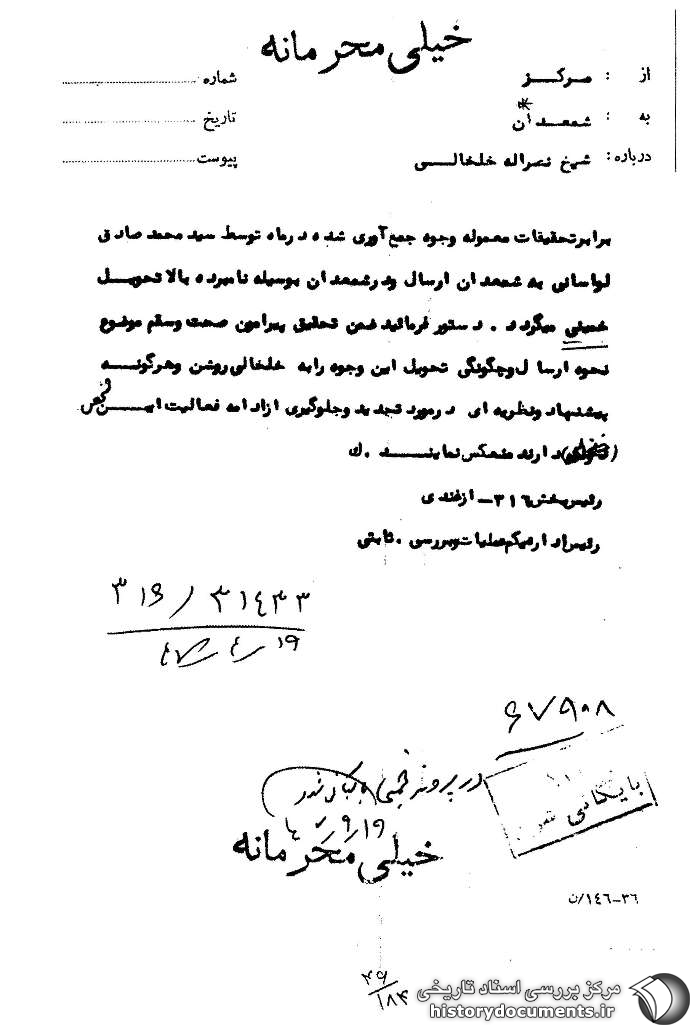 خیلی محرمانه
از : مرکز
شماره
به : شمعدان*
تاریخ
درباره : شیخ نصراله خلخالی
پیوست
برابر تحقیقات معموله وجوه جمع آوری شده در ماه توسط سید محمد صادق
لواسانی به شمعدان ارسال و در شمعدان بوسیله نامبرده بالا تحویل
خمینی میگردد . دستور فرمائید ضمن تحقیق پیرامون صحت وسقم موضوع
نحوه ارسال وچگونگی تحویل این وجوه را به خلخالی روشن وهرگونه
پیشنهاد ونظریه ای در مورد تحدید وجلوگیری از ادامه فعالیت این
دارند منعکس نمایند . ك
رئیس بخش ۳۱۶ - ازغندی
رئیس اداره یکم عملیات وبررسی . ثابتی
۳۱۶ / ۳۱۴۳۳
۱۹ / ٤ / ٤۷
۶۷۹۰۸
در پرونده خمینی بایگانی شود
بایگانی
۱۹ / ۹
خیلی محرمانه
۳۶-۱٤٦/ن
۴۹
۱۸۴
مرکز بررسی اسناد تاریخی
historydocuments.ir